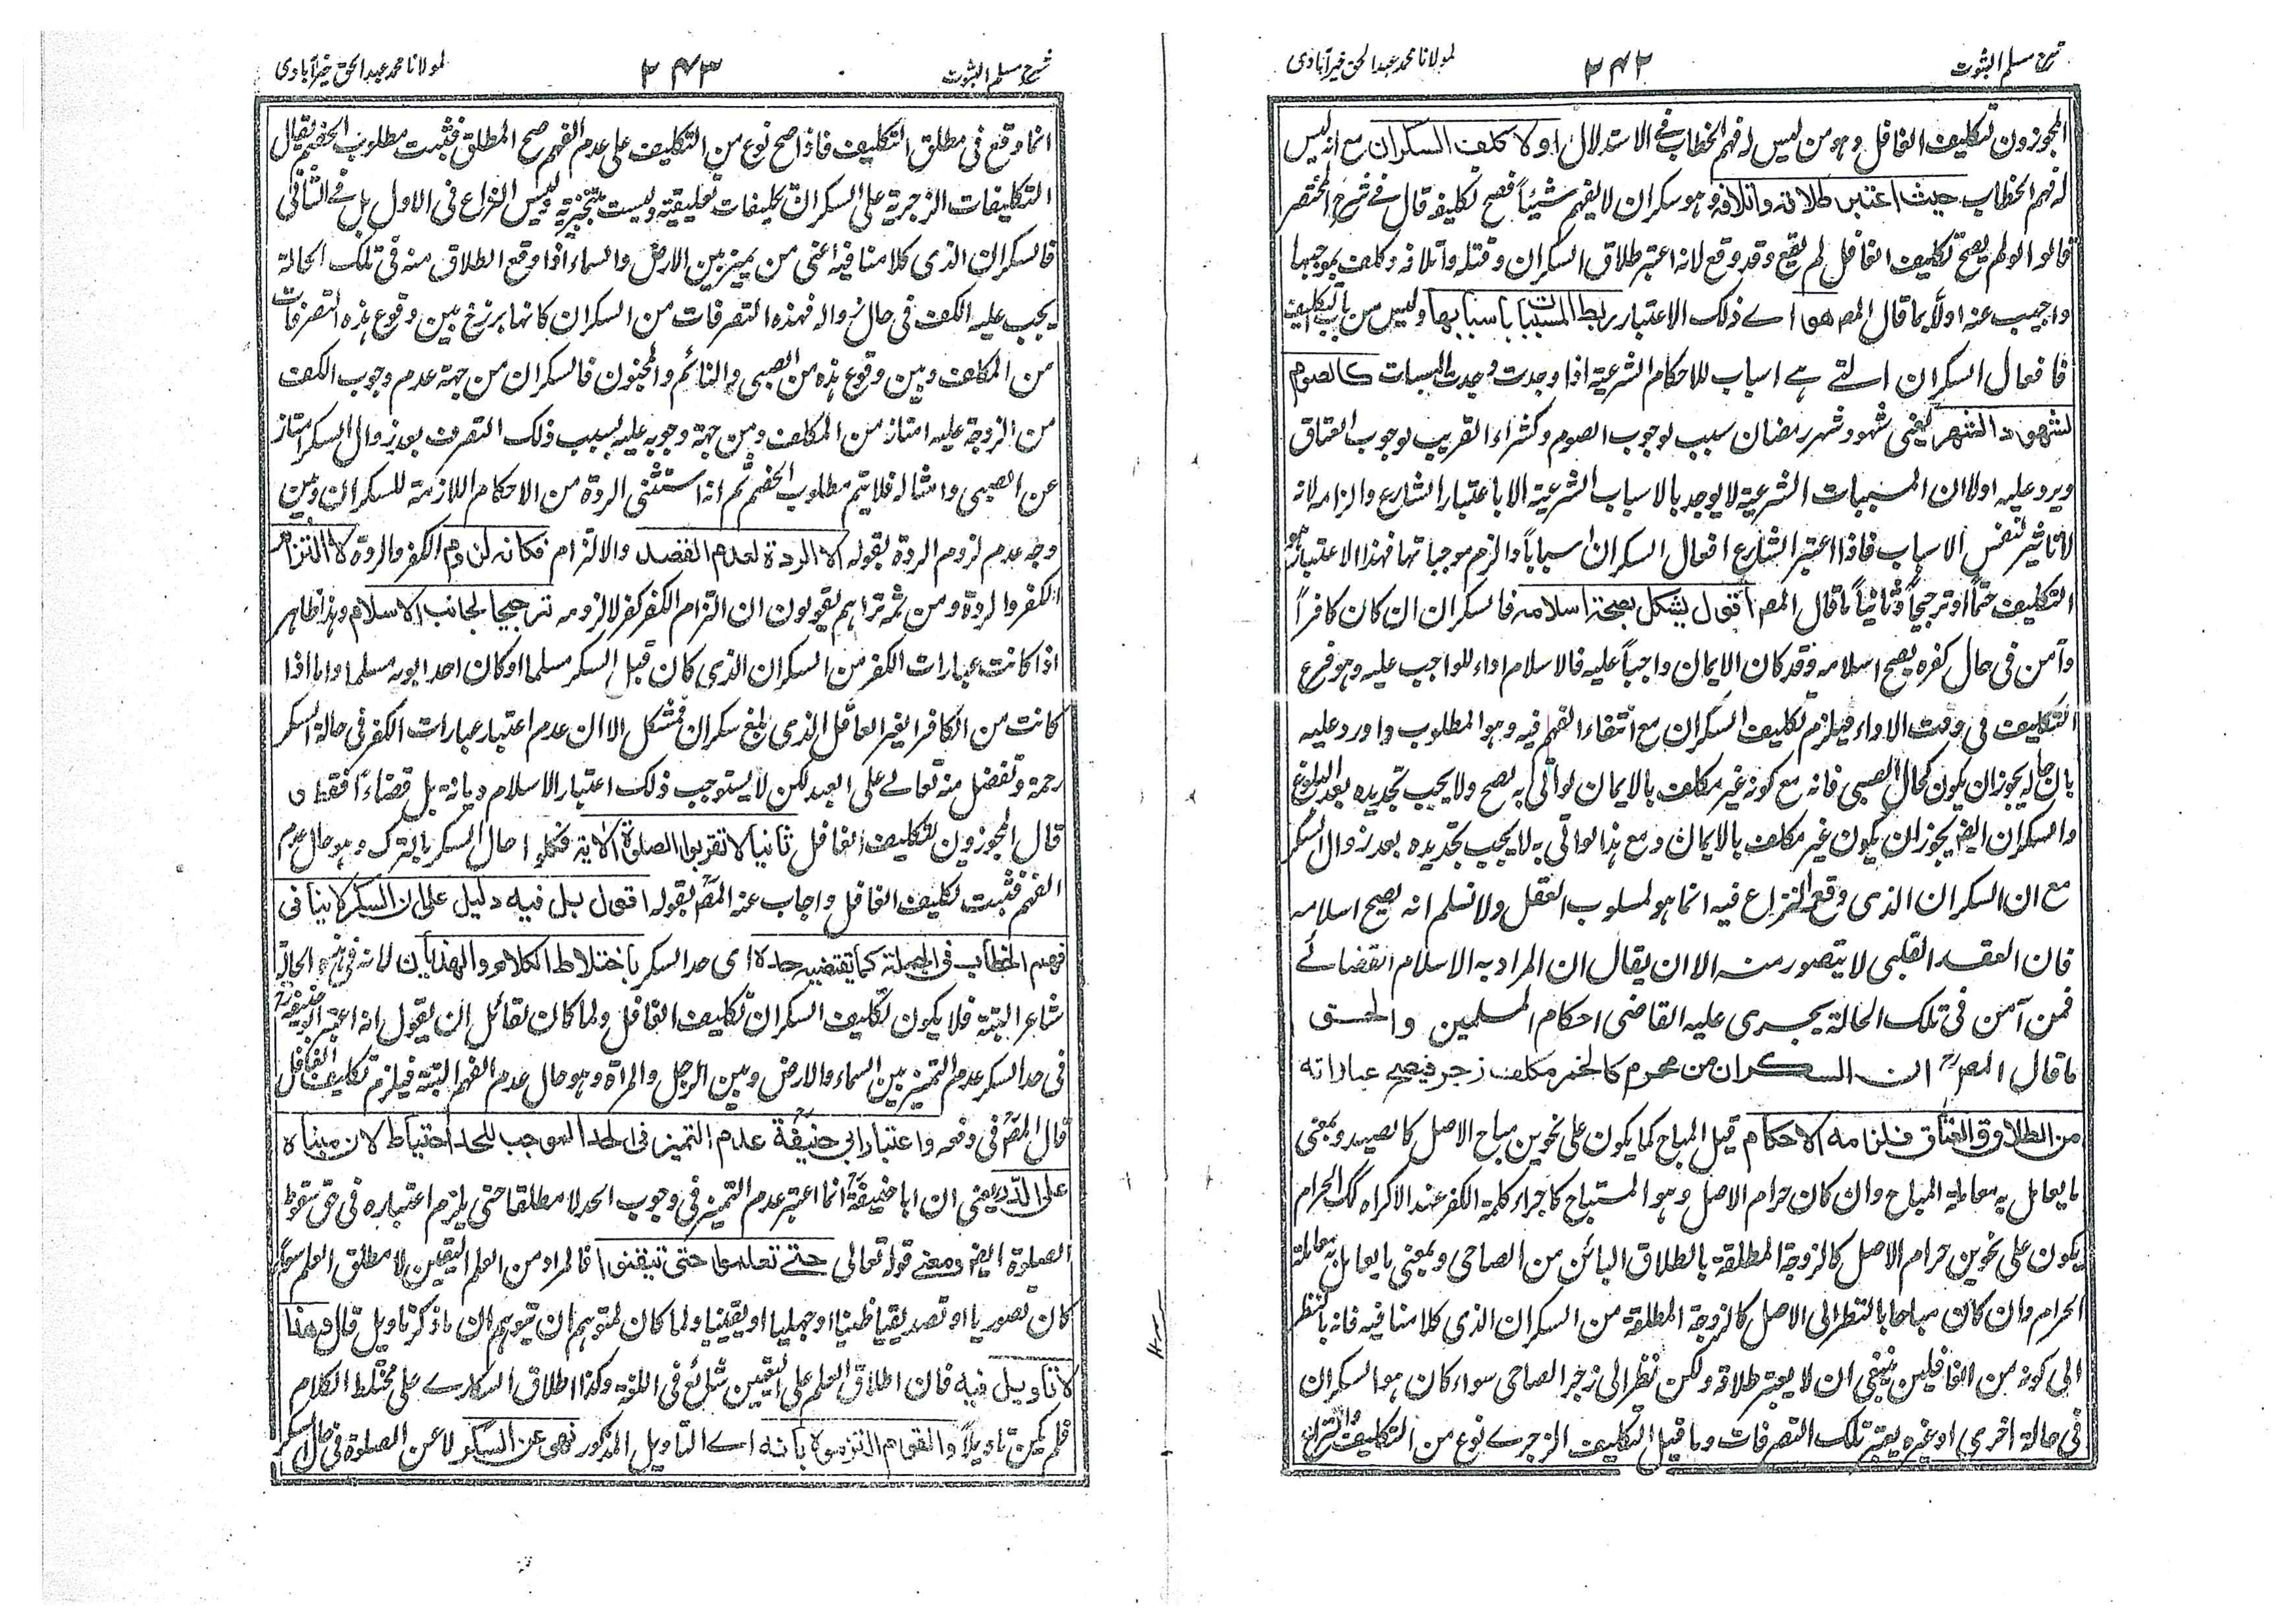 شرح مسلم الثبوت
٢٤٢
لمولانا محمد عبد الحق خیرآبادی
المجوزون تكليف الغافل وهو من ليس له فهم الخطاب فے الاستدلال اولا كلف السكران مع انه ليس
له فهم الخطاب حيث اعتبر طلاقه واتلافه وهو سكران لا يفهم شيئاً فصح تكليفه قال فے شرح المختصر
قالوا لو لم يصح تكليف الغافل لم يقع وقد وقع لانه اعتبر طلاق السكران وقتله واتلافه وكلف بموجبها
واجيب عنه اولاً بما قال المصـ هو اے ذلك الاعتبار ربط المسببات باسبابها وليس من باب التكليف
فافعال السكران التے هے اسباب للاحكام الشرعية اذا وجدت وجدت المسببات كالصوم
لشهود الشهر يعنی شهود شهر رمضان سبب لوجوب الصوم وكشراء القريب لوجوب العتاق
ويرد عليه اولا ان المسببات الشرعية لا يوجد بالاسباب الشرعية الا باعتبار الشارع والزامه لانه
لا تاثير لنفس الاسباب فاذا اعتبر الشارع افعال السكران اسباباً والزم موجباتها فهذا الاعتبار هو
التكليف حتماً او ترجيحاً وثانياً ما قال المصـ اقول يشكل بصحة اسلامه فالسكران ان كان كافراً
وآمن فی حال كفره يصح اسلامه وقد كان الايمان واجباً عليه فالاسلام اداء للواجب عليه وهو فرع
التكليف فی وقت الاداء فيلزم تكليف السكران مع انتفاء الفهم فيه وهو المطلوب واورد عليه
بان حاله يجوز ان يكون كحال الصبی فانه مع كونه غير مكلف بالايمان لو اتی به يصح ولا يجب تجديده بعد البلوغ
والسكران ايضـ يجوز ان يكون غير مكلف بالايمان ومع هذا لو اتی به لا يجب تجديده بعد زوال السكر
مع ان السكران الذی وقع النزاع فيه انما هو المسلوب العقل ولا نسلم انه يصح اسلامه
فان العقد القلبی لا يتصور منه الا ان يقال ان المراد به الاسلام القضائے
فمن آمن فی تلك الحالة يجری عليه القاضی احكام المسلمين والحق
ما قال المصـ ان السكران من محرم كالخمر مكلف زجر فيصح عباراته
من الطلاق والعتاق فلزامه الاحكام قيل المباح كما يكون علی نحوين مباح الاصل كالصيد وبمعنی
ما يعامل به معاملة المباح وان كان حرام الاصل وهو المستباح كاجراء كلمة الكفر عند الاكراه كك الحرام
يكون علی نحوين حرام الاصل كالزوجة المطلقة بالطلاق البائن من الصاحی وبمعنی ما يعامل به معاملة
الحرام وان كان مباحا بالنظر الی الاصل كالزوجة المطلقة من السكران الذی كلامنا فيه فانه بالنظر
الی كونه من الغافلين ينبغی ان لا يعتبر طلاقه ولكن نظر الی زجر الصاحی سواء كان هو السكران
فی حالة اخری او غيره يعتبر تلك التصرفات وما قيل التكليف الزجرے نوع من التكليف والنزاع
شرح مسلم الثبوت
٢٤٣
لمولانا محمد عبد الحق خیرآبادی
انما وقع فی مطلق التكليف فاذا صح نوع من التكليف علی عدم الفهم صح المطلق فثبت مطلوب الخصم يقال
التكليفات الزجرية علی السكران تكليفات تعليقية وليست بتنجيزية وليس النزاع فی الاول بل فے الثانی
فالسكران الذی كلامنا فيه اعنی من يميز بين الارض والسماء اذا وقع الطلاق منه فی تلك الحالة
يجب عليه الكف فی حال زواله فهذه التصرفات من السكران كانها برزخ بين وقوع هذه التصرفات
من المكلف وبين وقوع هذه من الصبی والنائم والمجنون فالسكران من جهة عدم وجوب الكف
من الزوجة عليه امتاز من المكلف ومن جهة وجوبه عليه بسبب ذلك التصرف بعد زوال السكر امتاز
عن الصبی وامثاله فلا يتم مطلوب الخصم ثم انه استثنی الردة من الاحكام اللازمة للسكران وبين
وجه عدم لزوم الردة بقوله الا الردة لعدم القصد والالتزام فكانه لزوم الكفر والردة لا التزام
الكفر والردة ومن ثم تراهم يقولون ان التزام الكفر كفر لا لزومه ترجيحا لجانب الاسلام وهذا ظاهر
اذا كانت عبارات الكفر من السكران الذی كان قبل السكر مسلما او كان احد ابويه مسلما واما اذا
كانت من الكافر الغير العاقل الذی بلغ سكران فمشكل الا ان عدم اعتبار عبارات الكفر فی حالة السكر
رحمة وتفضل منه تعالے علی العبد لكن لا يستوجب ذلك اعتبار الاسلام ديانة بل قضاءً فقط
قال المجوزون لتكليف الغافل ثانيا لا تقربوا الصلوة الآية فكلفوا حال السكر بالترك وهو حال عدم
الفهم فثبت تكليف الغافل واجاب عنه المصـ بقوله اقول بل فيه دليل علی ان السكر لا ينافی
فهم الخطاب فی الجملة كما يقتضيه حده ای حد السكر باختلاط الكلام والهذيان لانه فی هذه الحالة
شاعر البتة فلا يكون تكليف السكران تكليف الغافل ولما كان لقائل ان يقول انه اعتبر ابو حنيفة
فی حد السكر عدم التمييز بين السماء والارض وبين الرجل والمرأة وهو حال عدم الفهم البتة فيلزم تكليف الغافل
قال المصـ فی دفعه واعتبار ابی حنيفة عدم التميز فی الحد الموجب للحد احتياط لان مبناه
علی الدرء يعنی ان ابا حنيفة انما اعتبر عدم التميز فی وجوب الحد لا مطلقا حتی يلزم اعتباره فی حق سقوط
الصلوة ايضـ ومعنے قوله تعالی حتے تعلموا حتی تيقنوا فالمراد من العلم اليقين لا مطلق العلم سواء
كان تصوريا او تصديقيا ظنيا او جهليا او يقينيا ولما كان لمتوهم ان يتوهم ان ما ذكر تاويل قال وهذا
لا تاويل فيه فان اطلاق العلم علی اليقين شائع فی اللغة وكذا اطلاق السكارے علی مختلط الكلام
فلم يكن تاويلاً والقوم التزموا بانه اے التاويل المذكور نهی عن السكر لا عن الصلوة فی حال السكر